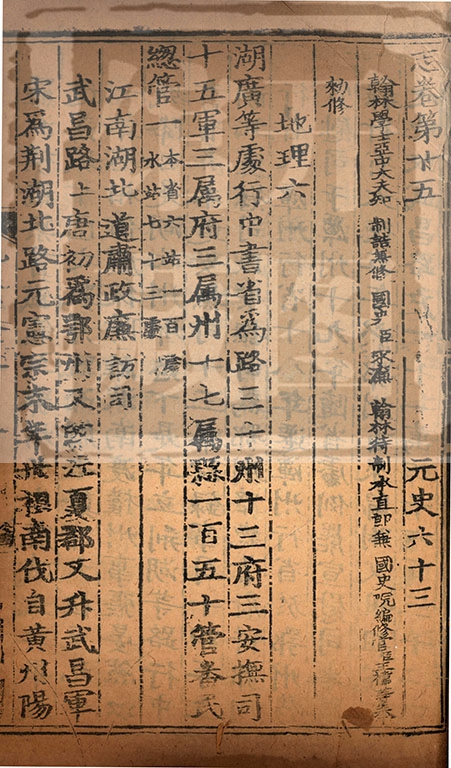 志卷第廿五 元史六十三
翰林學士亞中大夫知 制誥兼修 國史 臣 宋濂 翰林待制承直郎兼 國史院編修官臣王禕等奉
勑修
地理六
湖廣等處行中書省爲路三十州十三府三安撫司
十五軍三属府三属州十七属縣一百五十管番民
緫管一 本省六站一百處
水站七十三處
江南湖北道肅政廉訪司
武昌路上唐初爲鄂州又改江夏郡又升武昌軍
宋爲荆湖北路元憲宗末年世祖南伐自黄州陽